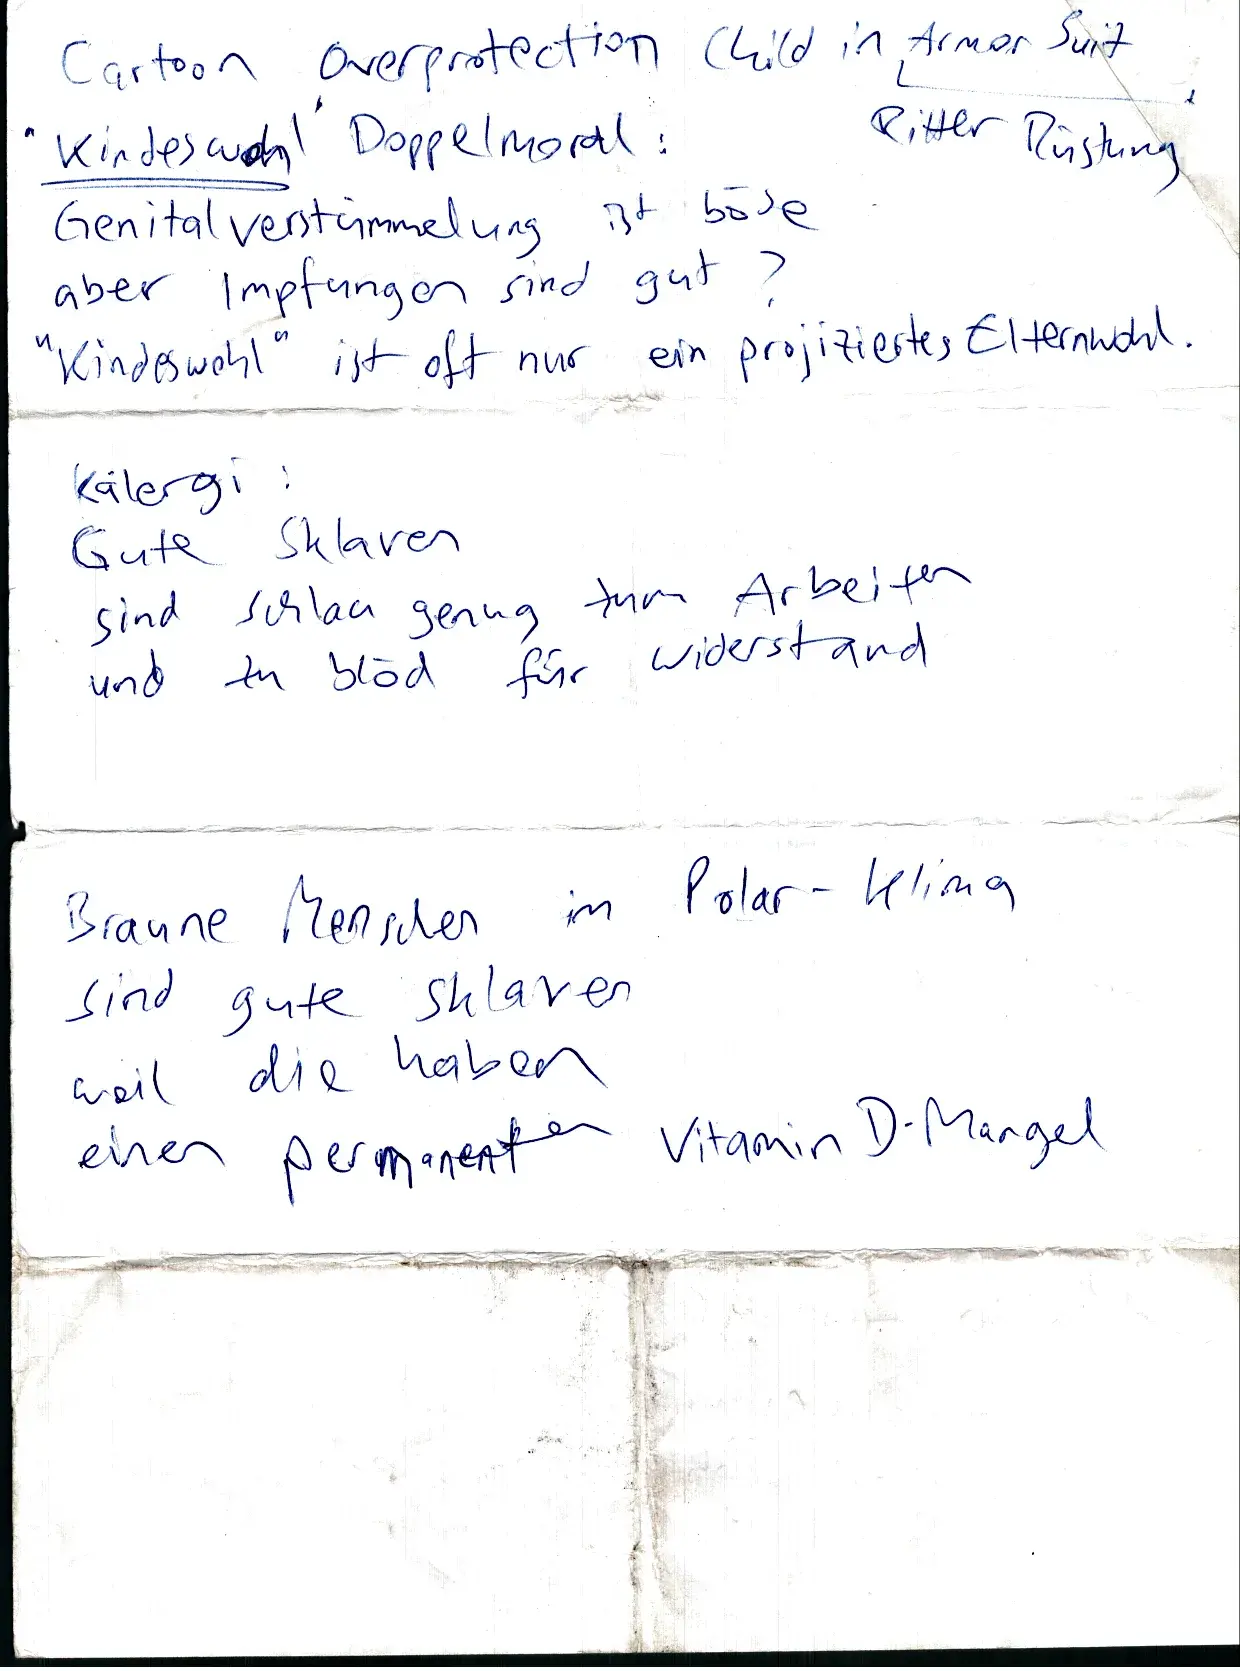 Cartoon Overprotection Child in Armor Suit
Ritter Rüstung
"Kindeswohl" Doppelmoral:
Genitalverstümmelung ist böse
aber Impfungen sind gut?
"Kindeswohl" ist oft nur ein projiziertes Elternwohl.
Kalergi:
Gute Sklaven
sind schlau genug zum Arbeiten
und zu blöd für widerstand
Braune Menschen im Polar-Klima
sind gute Sklaven
weil die haben
einen permanenten Vitamin D-Mangel